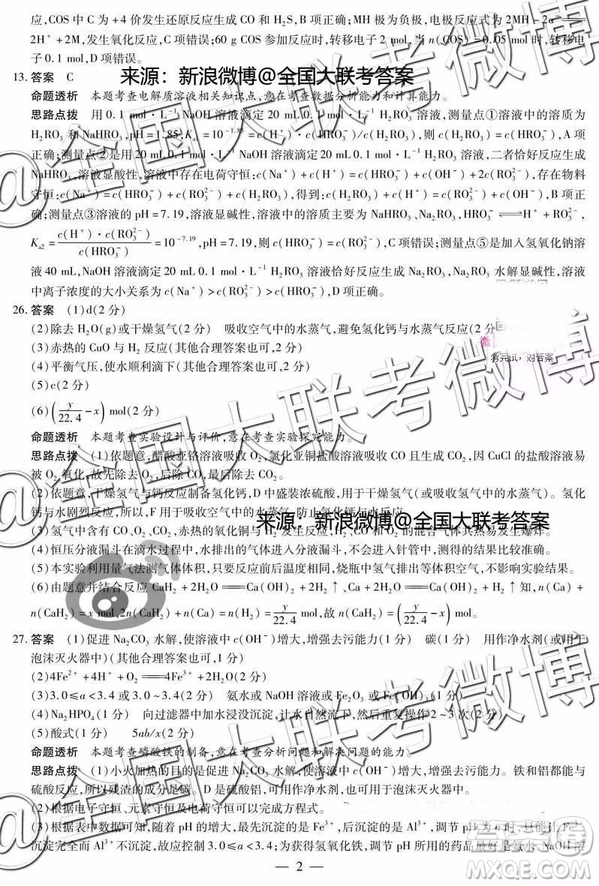 应,COS中C为+4价发生还原反应生成CO和H₂S,B项正确;MH极为负极,电极反应式为2MH-2e⁻
2H⁺+2M,发生氧化反应,C项错误;60 g COS参加反应时,转移电子2 mol,当n(COS)=0.05 mol时,转移电子
0.1 mol,D项错误。
13.答案 C
来源:新浪微博@全国大联考答案
命题透析 本题考查电解质溶液相关知识点,意在考查数据分析能力和计算能力。
思路点拨 用0.1 mol·L⁻¹ NaOH溶液滴定20 mL 0.1 mol·L⁻¹ H₂RO₃溶液,测量点①溶液中的溶质为
H₂RO₃和NaHRO₃,pH=1.85,
10⁻¹·⁸⁵=c(H⁺)·c(HRO₃⁻)/c(H₂RO₃),则c(H₂RO₃)=c(HRO₃⁻),A项
错误;测量点②是用0.1 mol·L⁻¹ NaOH溶液滴定20 mL 0.1 mol·L⁻¹ H₂RO₃溶液,二者恰好反应生成
NaHRO₃,溶液显酸性,溶液中存在电荷守恒:c(Na⁺)+c(H⁺)=c(HRO₃⁻)+2c(RO₃²⁻)+c(OH⁻),存在物料
守恒:c(Na⁺)=c(HRO₃⁻)+c(RO₃²⁻)+c(H₂RO₃),得到:c(H₂RO₃)+c(H⁺)=c(RO₃²⁻)+c(OH⁻),B项
错误;测量点③溶液的pH=7.19,溶液显碱性,溶液中的溶质主要为NaHRO₃、Na₂RO₃,HRO₃⁻⇌H⁺+RO₃²⁻,
Ka2=c(H⁺)·c(RO₃²⁻)/c(HRO₃⁻)=10⁻⁷·¹⁹,则c(HRO₃⁻)=c(RO₃²⁻),C项正确;测量点⑤是加入氢氧化钠溶
液40 mL,NaOH溶液滴定20 mL 0.1 mol·L⁻¹ H₂RO₃溶液恰好反应生成Na₂RO₃,Na₂RO₃水解显碱性,溶液
中离子浓度的大小关系为c(Na⁺)>c(RO₃²⁻)>c(OH⁻)>c(HRO₃⁻),D项错误。
26.答案 (1)d(2分)
(2)除去H₂O(g)或干燥氢气(2分) 吸收空气中的水蒸气,避免氢化钙与水蒸气反应(2分)
(3)赤热的CuO与H₂反应(其他合理答案也可以)(2分)
(4)平衡气压,使水顺利滴下(其他合理答案也可以)(2分)
(5)c(2分)
(6)(y/22.4-x) mol(2分)
命题透析 本题考查实验设计与评价,意在考查实验探究能力。
思路点拨 (1)依题意,醋酸亚铬溶液吸收O₂,氯化亚铜盐酸溶液吸收CO且生成CO₂,因为CuCl的盐酸溶液易
被O₂氧化,故先除去O₂,后除去CO。
(2)依题意,干燥氢气与钙反应制备氢化钙,D中盛装浓硫酸,用于干燥氢气(或吸收氢气中的水蒸气)。氢化
钙与水剧烈反应,所以,F用于吸收空气中的水蒸气,防止氢化钙与水反应。
来源:新浪微博@全国大联考答案
(3)氢气中含有CO、O₂、CO₂,赤热的氧化铜与H₂发生反应,
(4)恒压分液漏斗在滴水过程中,水排出的气体进入漏斗,不会进入针管中,测得的结果较准确。
(5)本实验利用量气法测气体体积,只要反应前后温度相同,烧瓶中不是氢气,不影响实验结果。
(6)由题意并结合反应Ca+2H₂O══Ca(OH)₂+H₂↑、CaH₂+2H₂O══Ca(OH)₂+2H₂↑可知,n(Ca)+
n(CaH₂)=x mol,n(Ca)+2n(CaH₂)=n(H₂)=y/22.4 mol,故n(CaH₂)=(y/22.4-x) mol。
27.答案 (1)促进Na₂CO₃水解,使溶液中c(OH⁻)增大,增强去污能力(1分) 碳(1分) 用作净水剂(或用于
泡沫灭火器中)(其他合理答案也可以)(1分)
(2)4Fe²⁺+4H⁺+O₂══4Fe³⁺+2H₂O(2分)
(3)3.0≤a<3.4或3.0~3.4(2分) 氨水或NaOH溶液或Fe₂O₃或Fe(OH)₃(1分)
(4)Na₂HPO₄(1分) 向过滤器中加水浸没沉淀,让水自然流下,然后重复操作2~3次(2分)
(5)酸式(1分) 5ab/x(2分)
命题透析 本题考查磷酸铁的制备,意在考查分析问题和解决问题的能力。
思路点拨 (1)小火加热的目的是促进碳酸钠水解,使溶液中c(OH⁻)增大,增强去污能力。铁和铝都能与
硫酸反应,所以残渣的主要成分是碳。D是硫酸铝,可用作净水剂。
(2)根据电子守恒、元素守恒及电荷守恒可以完成方程式。
(3)根据表中数据可知,最先沉淀的是Fe³⁺,后沉淀的是Al³⁺,调节pH
沉淀完全而Al³⁺不沉淀,D中含有Al³⁺,故可制备氢氧化铁,调节pH所用的药品
— 2 —
@全国大联考微博